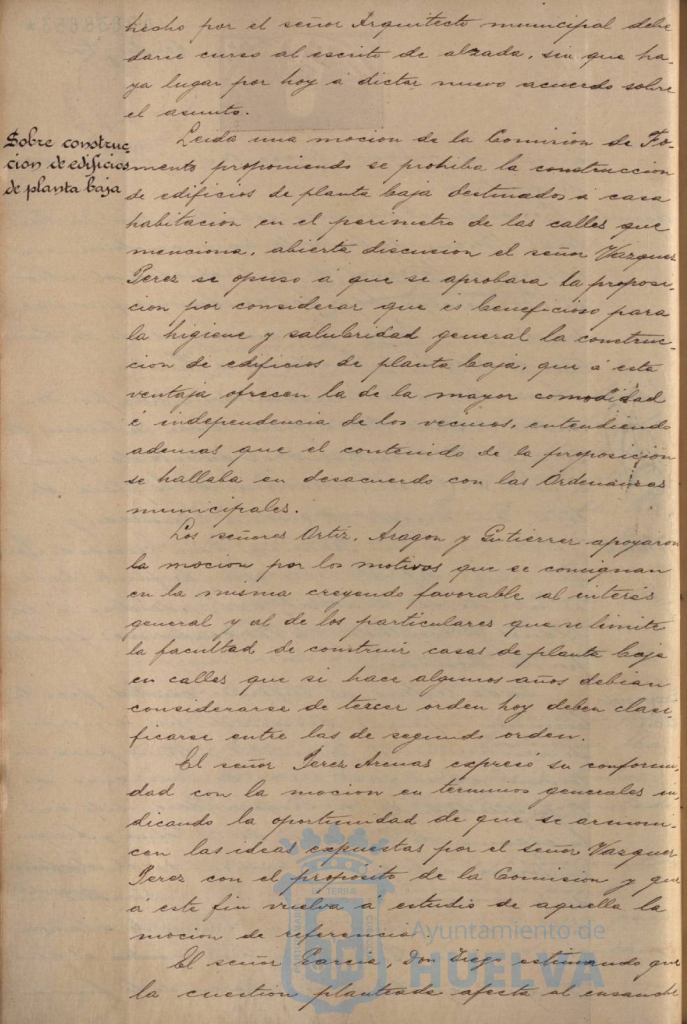 hecho por el señor Arquitecto municipal debe
darse curso al escrito de alzada, sin que ha-
ya lugar por hoy á dictar nuevo acuerdo sobre
el asunto.
Sobre construc-
cion de edificios
de planta baja
Leida una mocion de la Comision de Fo-
mento proponiendo se prohiba la construccion
de edificios de planta baja destinados á casa
habitacion en el perimetro de las calles que
menciona, abierta discusion el señor Vazquez
Perez se opuso á que se aprobara la proposi-
cion por considerar que es beneficioso para
la higiene y salubridad general la construc-
cion de edificios de planta baja, que á esta
ventaja ofrecen la de la mayor comodidad
é independencia de los vecinos, entendiendo
ademas que el contenido de la proposicion
se hallaba en desacuerdo con las Ordenanzas
municipales.
Los señores Ortiz, Aragon y Gutierrez apoyaron
la mocion por los motivos que se consignan
en la misma creyendo favorable al interés
general y al de los particulares que se limite
la facultad de construir casas de planta baja
en calles que si hace algunos años debian
considerarse de tercer orden hoy deben clasi-
ficarse entre las de segundo orden.
El señor Perez Arenas expresó su conformi-
dad con la mocion en terminos generales in-
dicando la oportunidad de que se armoni-
cen las ideas expuestas por el señor Vazquez
Perez con el propósito de la Comision y que
á este fin vuelva á estudio de aquella la
mocion de referencia.
El señor Garcia, Don Diego estimando que
la cuestion planteada afecta al ensanche
Ayuntamiento de
HUELVA